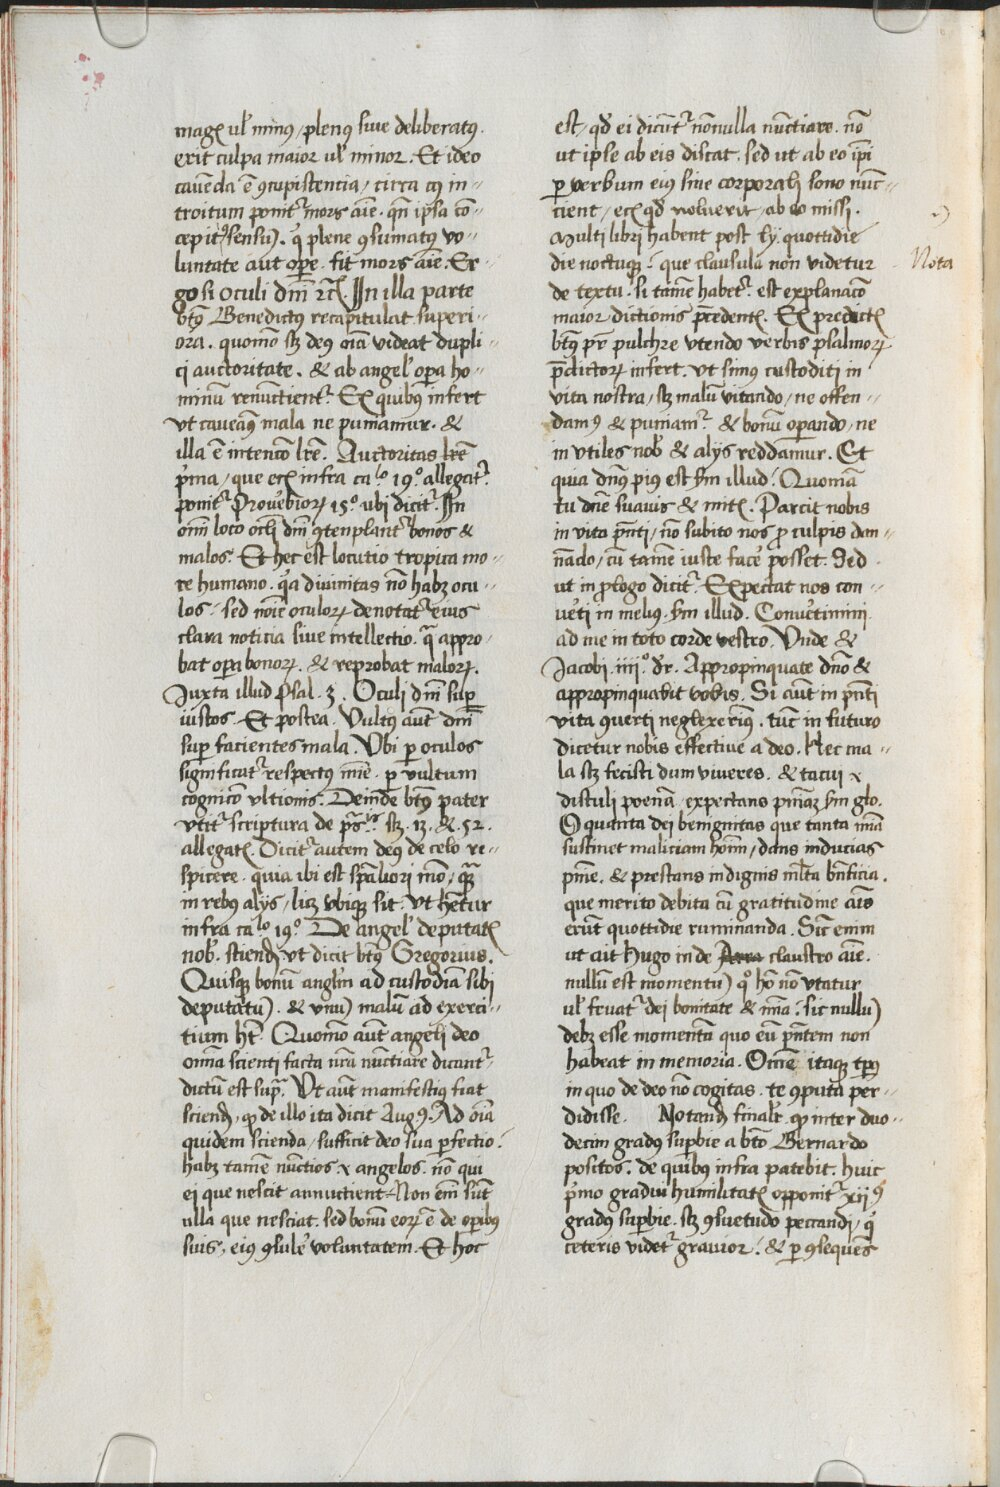 magꝭ vl' minꝰ, plenꝰ siue deliberatꝰ.
erit culpa maior ul' minor. Et ideo
cauēda ē ꝯcupiscentia, circa cꝰ in-
troitum ponit᷑ mors aīe. qn̄ ipsa cō-
cepit. sensu). qꝫ plene ꝯsumatꝰ vo-
luntate aut oꝑe. fit mors aīe. Er-
go si oculi dn̄i ⁊cꝭ. In illa parte
bt̄ꝰ Benedictus recapitulat superi-
ora. quomō sꝫ deꝰ oīa videat dupli-
ci auctoritate. & ab angel' oꝑa ho-
minū renūctient᷑. Ex quibꝰ infert
vt caueaꝰ mala ne puniamur. &
illa ē intencō lr̄e. Auctoritas lr̄e
p'ma, que ecꝭ infra ca.lo 19.o allegat᷑.
ponit᷑ Prouerbioꝝ 15.o ubi dicit᷑. In
om̄i loco oclī dn̄i ꝯtenplant᷑ bonos &
malos. Et hec est locutio tropica mo-
re humano. q'a diuinitas nō habꝫ ocu-
los: sed noīe oculoꝝ denotat᷑ eius
clara noticia siue intellectio. qᵃ appro-
bat oꝑa bonoꝝ. & reprobat maloꝝ.
Juxta illud Psal. 3. Oculi dn̄i suꝑ
iustos. Et postea. Vultꝰ aūt dn̄i
suꝑ facientes mala. Vbi ꝑ oculos
significat᷑ respectꝰ mīe. ꝑ vultum
cognicō vltionis. Deinde bt̄ꝰ pater
vtit᷑ scriptura de ps.is sꝫ. 13. &. 52.
allegatꝭ. Dicit᷑ autem deꝰ de celo re-
spicere. quia ibi est spāliori mō, qᵃꝫ
in rebꝰ alijs, licꝫ vbiqꝫ sit. vt hēt̄ur
infra ca.lo 19.o De angel' deputatꝭ
nob'. sciend' vt dicit bt̄ꝰ Gregorius.
Quisqꝫ bonū angl'm ad custodiā sibi
deputatu). & vnu) malū ad exerci-
tium hꝫ. Quomō aūt angeli deo
omnia scienti facta nr̄a nūctiare dicant᷑
dictū est supᵃ. Vt aūt manifestiꝰ fiat
sciend', qꝫ de illo ita dicit Aug.ꝰ Ad oīa
quidem scienda, sufficit deo sua ꝑfectio:
habꝫ tamē nūctios & angelos. nō qui
ei que nescit annuctient. Non em̄ sūt
ulla que nesciat. sed bonū eoꝝ ē de oꝑibꝰ
suis, eiꝰ ꝯsule' voluntatem. Et hoc
est, qd' ei dicūt᷑ nōnulla nūctiare. nō
ut ipse ab eis discat. sed ut ab eo ip̄i
ꝑ verbum eiꝰ sine corporali sono nūc-
cient, ecꝭ qd' voluerit, ab eo missi.
Multi libri habent post ly. quottidie
die noctuqꝫ: que clausula non videtur
de textu. si tamē habet᷑. est explanacō
maior dictionis p̄cedentꝭ. Ex predictꝭ
bt̄ꝰ pr̄ pulchre vtendo verbis psalmoꝝ
p̄dictoꝝ infert. Vt simꝰ custoditi in
vita nostra, sꝫ malū vitando, ne offen-
damꝰ & puniam᷑. & bonū oꝑando, ne
in vtiles nob' & alijs reddamur. Et
quia dn̄ꝰ pius est s'm illud: Quoniā
tu dn̄e suauis & mitꝭ. Parcit nobis
in vita pn̄ti, nō subito nos ꝓ culpis dan-
nādo, cū tamē iuste face' posset. Sed
ut in ꝓlogo dicit᷑. Expectat nos con-
ue'ti in melius. s'm illud. Conue'timini
ad me in toto corde vestro. Vnde &
Jacobi. iiii.o d'r. Appropinquate dn̄o &
appropinquabit vobis. Si aūt in pn̄ti
vita ꝯuerti neglexerimꝰ. tūc in futuro
dicetur nobis effectiue a deo. Hec ma-
la sꝫ fecisti dum viueres. & tacui &
distuli poenā, expectans pn̄iaꝫ s'm glo.
O quanta dei benignitas que tanta mīa
sustinet maliciam hoīm, dans inducias
pn̄ie. & prestans indignis ml'ta bn̄ficia.
que merito debita cū gratitudine aīs
erūt quottidie ruminanda. Sic enim
ut ait Hugo in de claustro aīe.
nullū est momentu) qo hō nō vtatur
ul' fruat᷑ dei bonitate & mīa: sic nullu)
debꝫ esse momentū quo eū pn̄tem non
habeat in memoria. Omē itaqꝫ tp̄ꝰ
in quo de deo nō cogitas. te ꝯputa per-
didisse. Notand' final'r. qꝫ inter duo-
decim gradꝰ suꝑbie a bt̄o Bernardo
positos. de quibꝰ infra patebit. huic
p'mo gradui humilitatꝭ opponit᷑ xijꝰ
gradꝰ suꝑbie. sꝫ ꝯsuetudo peccandi, qꝫ
ceteris videt᷑ grauior: & ꝑ ꝯsequēs
Nota